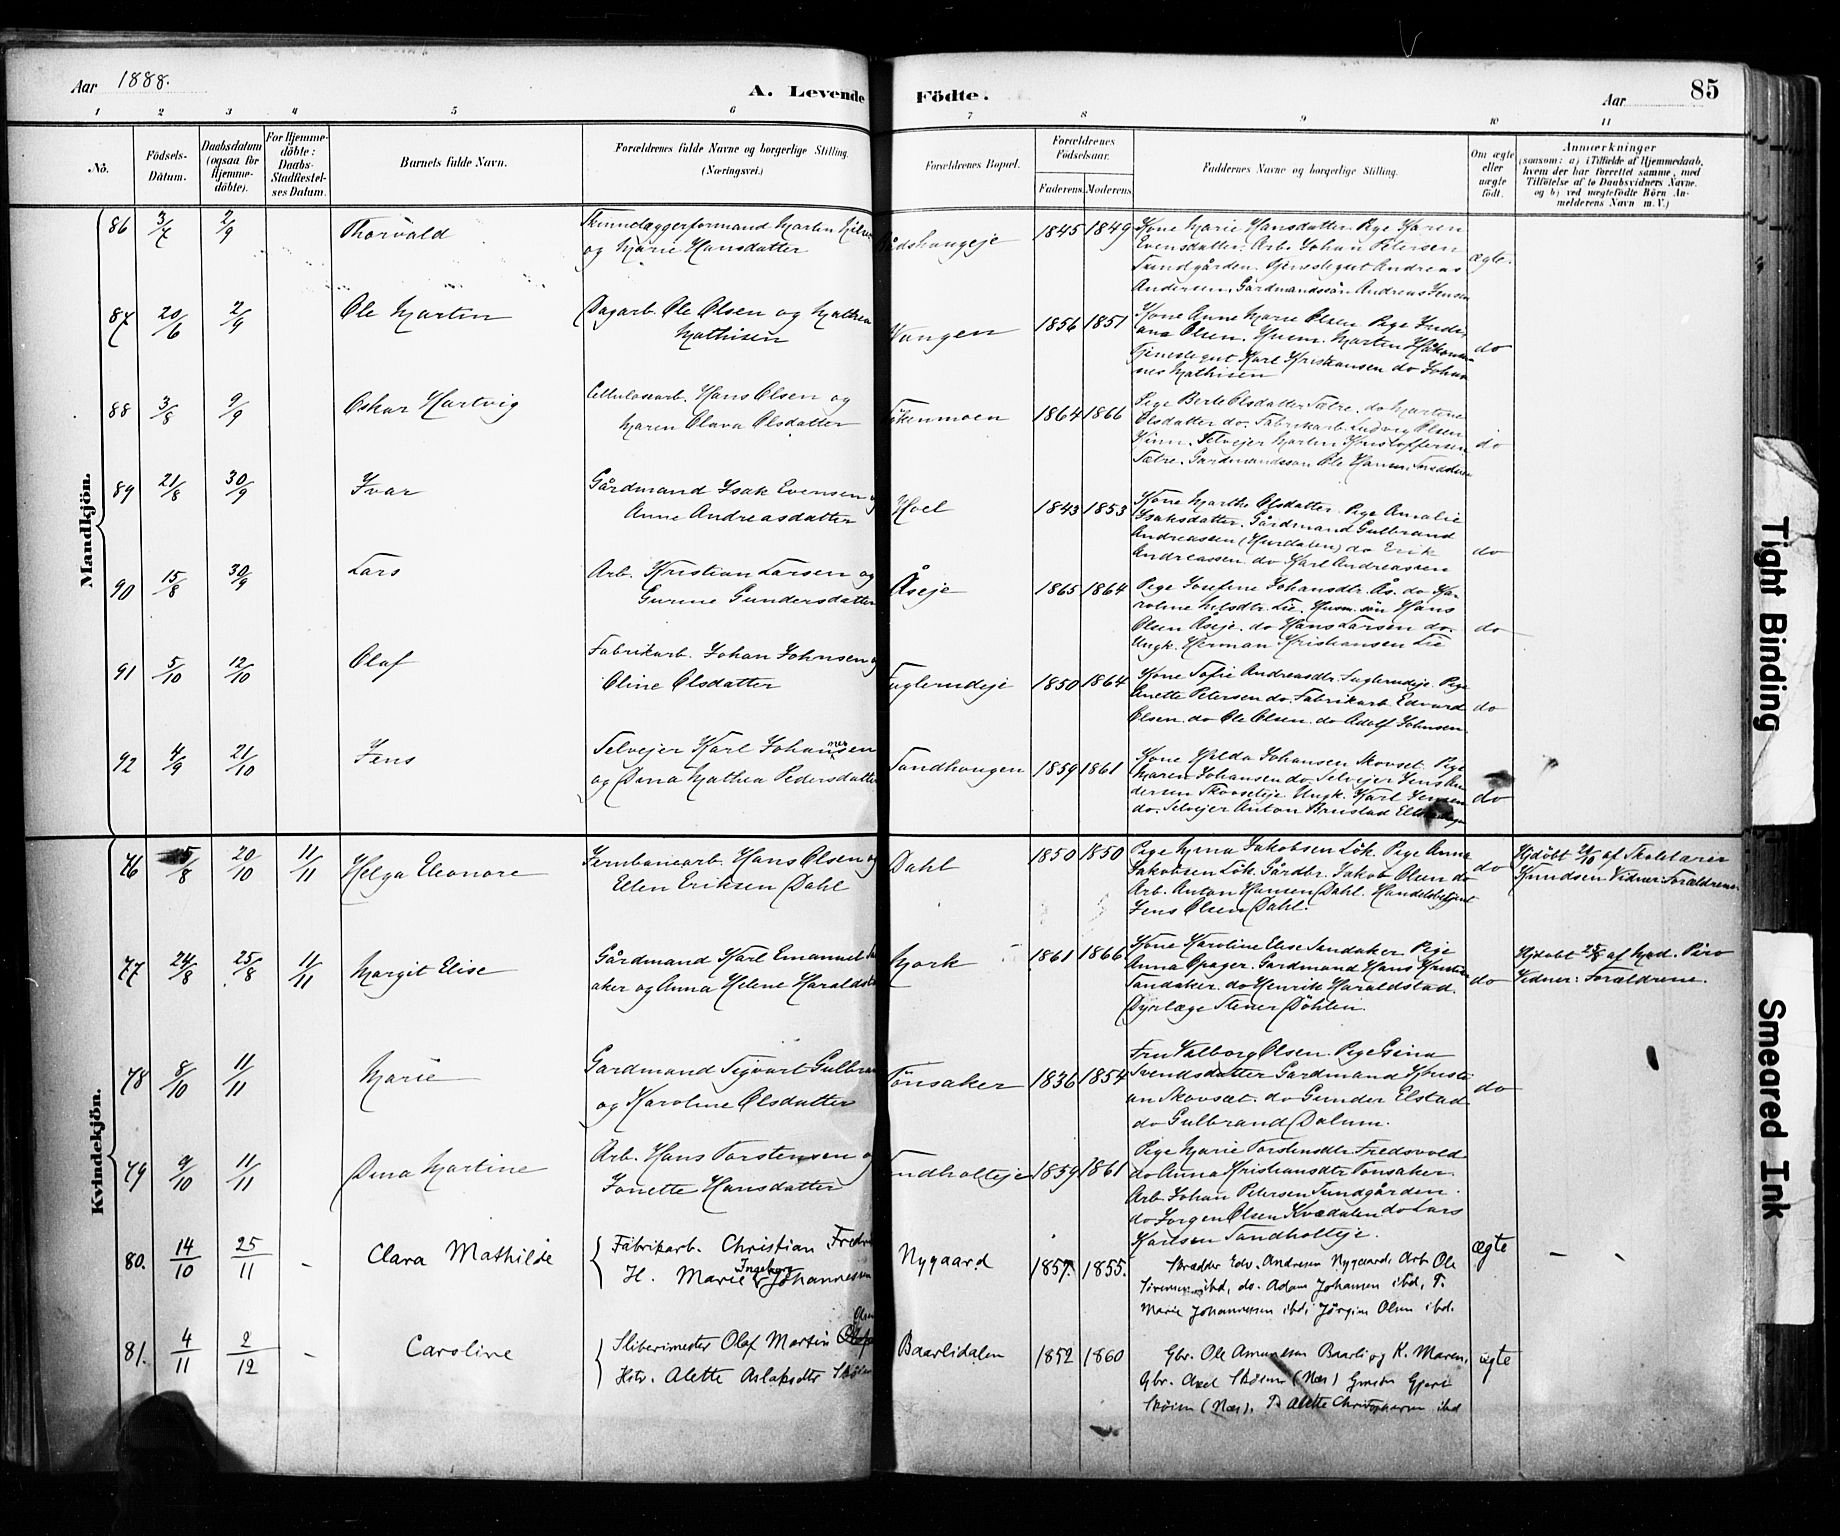 Aar 1888.
A. Levende Födte.
Aar
85
1 2 3 4 5 6 7 8 9 10 11
No.
Födsels-Dátum.
Daabsdatum (ogsaa for Hjemme-döbte).
For Hjemme-döbte: Daabs-Stadfæstel-ses Datum.
Barnets fulde Navn.
Forældrenes fulde Navne og borgerlige Stilling. (Næringsvei.)
Forældrenes Bopæl.
Forældrenes Födselsaar.
Faderens. Moderens.
Faddernes Navne og borgerlige Stilling.
Om ægte eller uægte födt.
Anmærkninger
(saasom: a) i Tilfælde af Hjemmedaab,
hvem der har forrettet samme, med
Tilföielse af to Daabsvidners Navne,
og b) ved uægtefödte Börn An-
melderens Navn m. V.)
Mandkjön.
86 3/7 2/9 Thorvald
og Marie Hansdatter
1845 1849
Kone Marie Hansdatter. Pige Karen
Evensdatter. Arb. Johan Petersen
Sundgården. Tjenestegut Andreas
Andersen. Gårdmandssön Andreas Jensen
ægte.
87 20/6 2/9 Ole Martin
Dagarb. Ole Olsen og Mathea
Mathisen
Vangen
1856 1851
Kone Anne Marie Olsen. Pige
Olsen. Husm. Martin
Tjenestegut Karl Kristiansen do Johan
nes Mathisen
do
88 3/8 9/9 Oskar Hartvig
Cellulosearb. Hans Olsen og
Maren Olava Olsdatter
1864 1866
Pige Berte Olsdatter Sætre. do Martine
Olsdatter do. Fabrikarb. Ludvig Olsen
Selvejer Martin Kristoffersen
Sætre. Gardmandsson Ole Hansen
do
89 21/8 30/9 Ivar
Gårdmand Isak Evensen og
Anne Andreasdatter
Hoel
1843 1853
Kone Marthe Olsdatter. Pige Amalie
Isaksdatter. Gårdmand Gulbrand
Andreassen (Hurdalen) do Erik
Andreassen do Karl Andreassen
do
90 15/8 30/9 Lars
Arb. Kristian Larsen og
Gurine Gundersdatter
Åseje
1865 1864
Pige Josefine Johansdtr. Ås. do Ka-
roline Nelsdtr. Lie. Husm. sön Hans
Olsen Åseje. do Hans Larsen do.
Ungk. Herman Kristiansen Lie
do
91 5/10 12/10 Olaf
Fabrikarb. Johan Johnsen og
Oline Olsdatter
Fuglerudeje
1850 1864
Kone Sofie Andreasdtr. Fuglerudeje. Pige
Anette Petersen do. Fabrikarb. Edvard
Olsen do Ole Olsen do Adolf Johnsen
do
92 4/9 21/10 Jens
Selvejer Karl Johannesen
og Dina Mathea Pedersdatter
Sandhougen
1859 1861
Kone Hilda Johansen Skovset. Pige
Maren Johansen do. Selvejer Jens An
dersen Skovseteje. Ungk. Karl Jensen
do. Selvejer Anton Brustad
do
Kvindekjön.
76 5/8 20/10 11/11 Helga Eleonore
Jernbanearb. Hans Olsen og
Ellen Eriksen Dahl
Dahl
1850 1850
Pige Mina Jakobsen Lök. Pige Anna
Jakobsen Lök. Gårdbr. Jakob Olsen do
Arb. Anton Hansen Dahl. Handelsbetjent
Jens Olsen Dahl.
do
Hjdöbt 20/10 af Skolelærer
Knudsen Vidner: Forældrene
77 24/8 25/8 11/11 Margit Elise
Gårdmand Karl Emanuel
aker og Anna Helene Haraldstad
Mork
1861 1866
Kone Karoline Elise Sandaker. Pige
Anna Opager. Gardmand Hans Kristian
Sandaker. do Henrik Haraldstad.
Dyrlæge Döhlin.
do
Hjdöbt 25/8 af Mad. Piro
Vidner: Forældrene.
78 8/10 11/11 Marie
Gardmand Sigvart Gulbran
og Karoline Olsdatter
Tönsaker
1836 1854
Fru Valborg Olsen. Pige Gina
Svendsdatter Gardmand Kristi
an Skovsæt. do Gunder Elstad
do Gulbrand Dalum.
do
79 9/10 11/11 Dina Martine
Arb. Hans Torstensen og
Jonette Hansdatter
Sandholteje
1859 1861
Pige Marie Torstensdtr. Fredsvold
do Anna Kristiansdtr Tönsaker.
Arb. Johan Petersen Sundgården.
do Jorgen Olsen Kvædalen do Lars
Karlsen Sandholteje.
80. 14/10 25/11 - Clara Mathilde
Fabrikarb. Christian Fredr
H. Marie Ingeborg Johannessen
Nygaard
1857. 1855.
Skrædder Edv. Andresen Nygaard, Arb. Ole
ibd, do. Adam Johansen ibd, P.
Marie Johannessen ibd, Jörgine Olsen ibd.
ægte
- -
81. 4/11 2/12 - Caroline
Sliberimester Olaf Martin Olsen
Hstr. Alette Aslaksdtr Sköien
Baarlidalen
1852 1860
Gbr. Ole Amundsen Baarli og K. Maren,
Gbr. Axel Sköien (Næs) Gjert
Sköien (Næs). P. Alette Christophersen ibd
ægte
Tight Binding
Smeared Ink